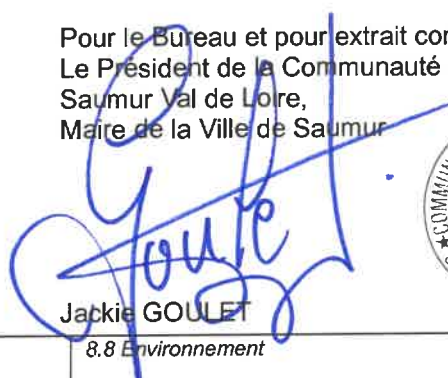 Pour le Bureau et pour extrait con
Le Président de la Communauté
Saumur Val de Loire,
Maire de la Ville de Saumur
COMMUN
Goulet
Jackie GOULET
8.8 Environnement